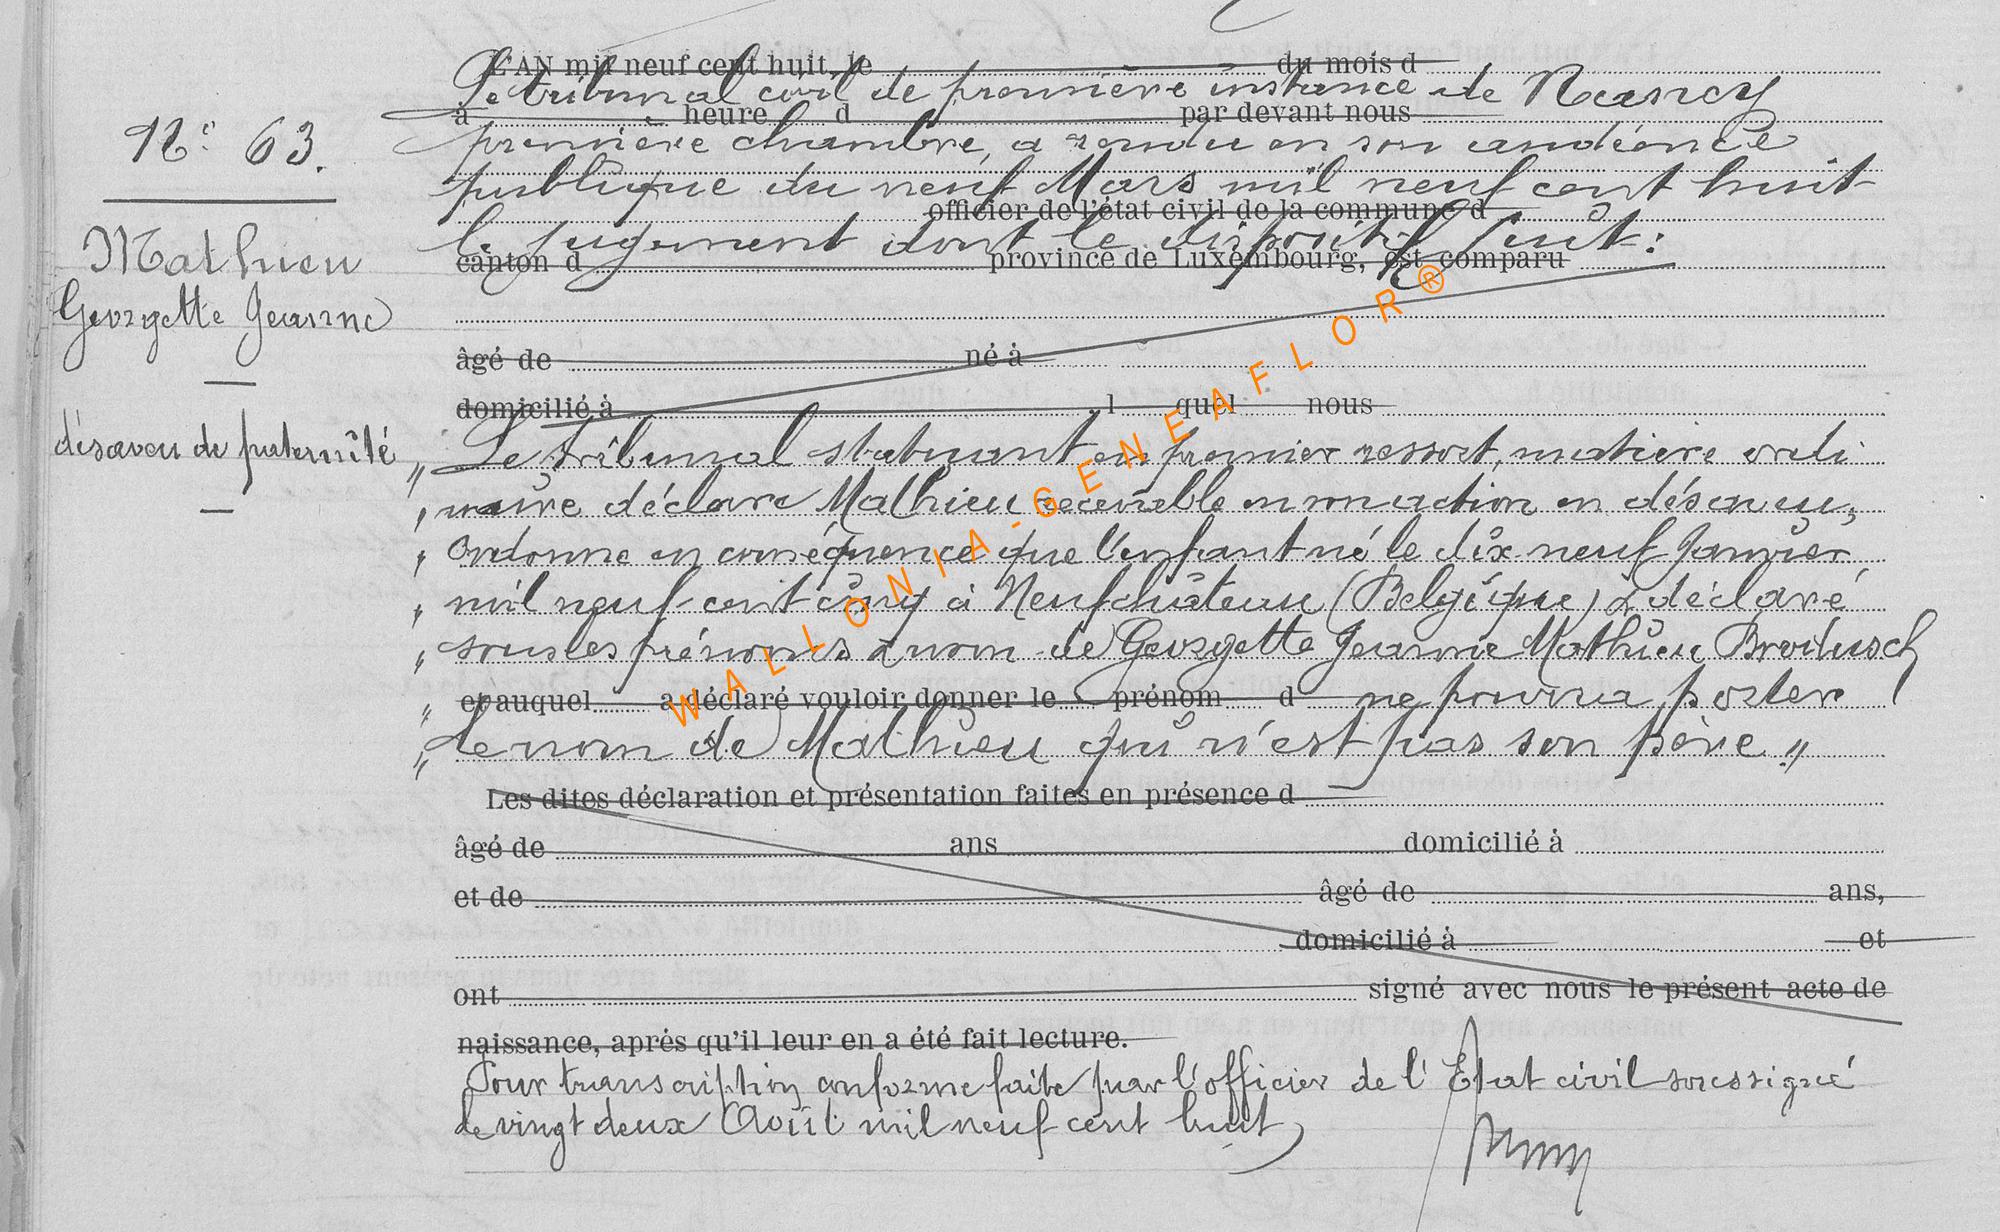 L'AN mil neuf cent huit, le du mois d
Le tribunal civil de première instance de Nancy
à heure d par devant nous
N° 63.
première chambre, a rendu en son audience
publique du neuf Mars mil neuf cent huit
officier de l'état civil de la commune d
le jugement dont le dispositif suit :
canton d province de Luxembourg, est comparu
Mathieu
Georgette Jeanne
âgé de né à
domicilié à l quel nous
désaveu de paternité
„ Le tribunal statuant en premier ressort, matière ordi
„ naire déclare Mathieu recevable en son action en désaveu,
„ Ordonne en conséquence que l'enfant né le dix neuf Janvier
„ mil neuf cent cinq à Neufchâteau (Belgique) & déclaré
„ sous les prénoms & nom de Georgette Jeanne Mathieu
„ et auquel a déclaré vouloir donner le prénom d ne pourra porter
„ le nom de Mathieu qui n'est pas son père „
Les dites déclaration et présentation faites en présence d
âgé de ans domicilié à
et de âgé de ans,
domicilié à et
ont signé avec nous le présent acte de
naissance, après qu'il leur en a été fait lecture.
Pour transcription conforme faite par l'officier de l'Etat civil soussigné
le vingt deux Août mil neuf cent huit
WALLONIA-GENEAFLOR®